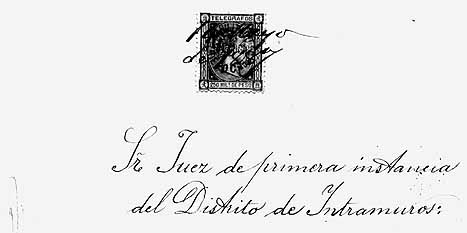 TELEGRAFOS
de
250 MILS DE PESO
Sr̃ Juez de primera instancia
del Distrito de Intramuros: